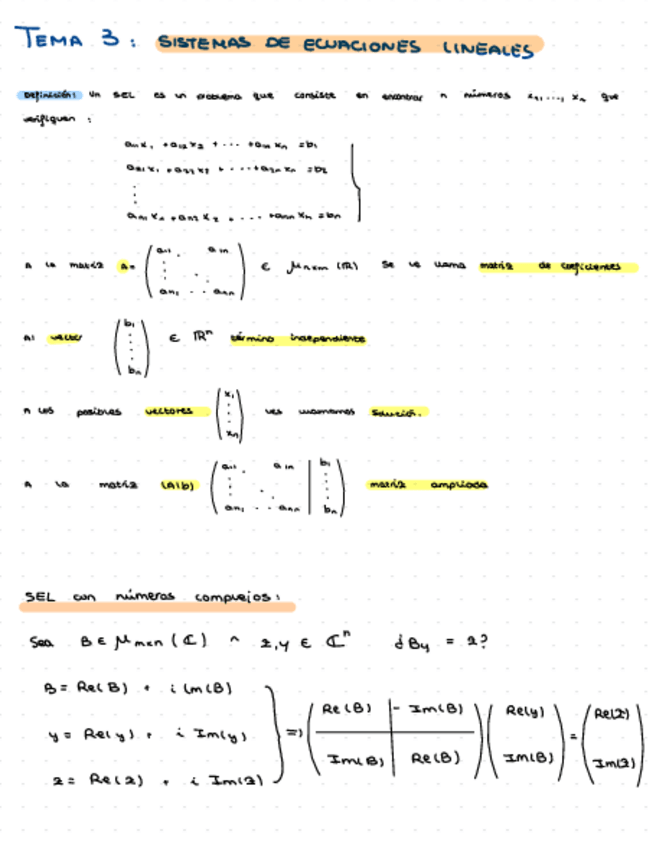 TEMA 3: SISTEMAS DE ECUACIONES LINEALES
Definición: Un SEL es un problema que consiste en encontrar n números x₁,..., xₙ que
verifiquen:
a₁₁x₁ + a₁₂x₂ + ... + a₁ₙxₙ = b₁
a₂₁x₁ + a₂₂x₂ + ... + a₂ₙxₙ = b₂
⋮
aₙ₁xₙ + aₙ₂x₂ + ... + aₙₙxₙ = bₙ
A la matriz A = ( a₁₁ a₁ₙ ⋮ ⋱ aₙ₁ ... aₙₙ ) ∈ Mₙₓₘ (ℝ) se le llama matriz de coeficientes
Al vector ( b₁ ⋮ bₙ ) ∈ ℝⁿ término independiente
A los posibles vectores ( x₁ ⋮ xₙ ) les llamamos solución.
A la matriz (A|b) ( a₁₁ a₁ₙ ⋮ ⋱ aₙ₁ ... aₙₙ | b₁ ⋮ bₙ ) matriz ampliada
SEL con números complejos:
Sea B ∈ Mₘₓₙ (ℂ) ^ z, y ∈ ℂⁿ ¿By = z?
B = Re(B) + i Im(B)
y = Re(y) + i Im(y)
z = Re(z) + i Im(z)
=> ( Re(B) | - Im(B) ) ( Re(y) ) = ( Re(z) )
( Im(B) | Re(B) ) ( Im(B) ) ( Im(z) )